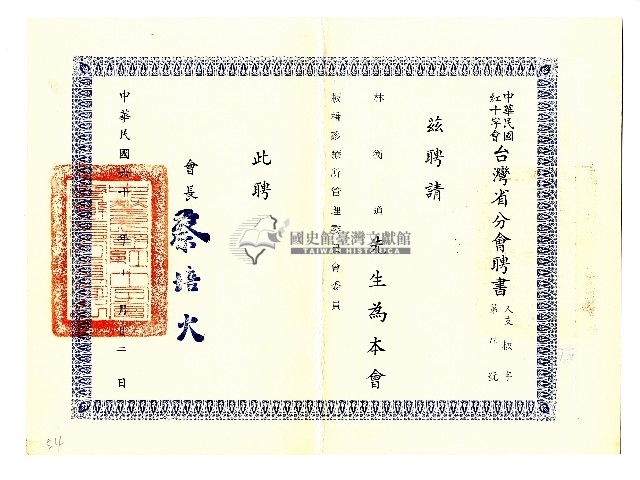 中華民國
紅十字會
台灣省分會聘書
人支板字
第 號
茲聘請
林衡道先生為本會
板橋診療所管理委員會委員
此聘
會長 蔡培火
中華民國 年 月 二日
國史館臺灣文獻館
TAIWAN HISTORICA
54